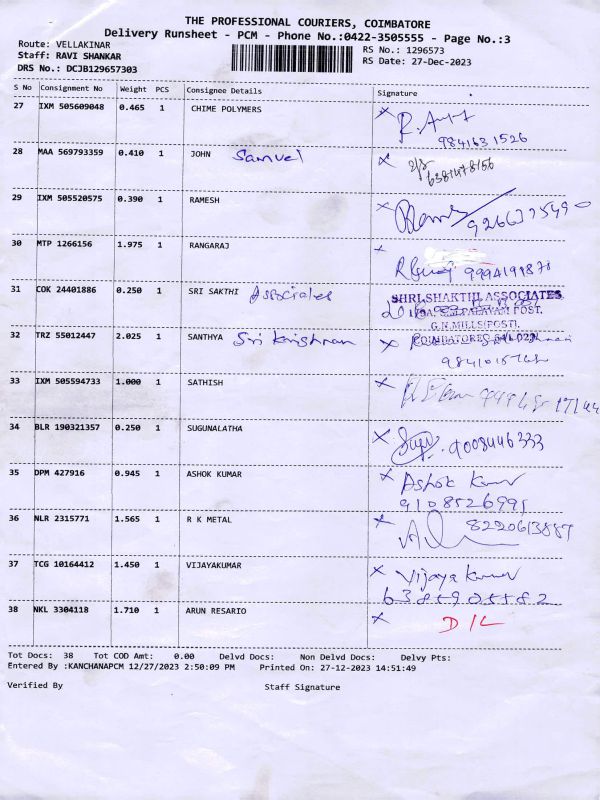 THE PROFESSIONAL COURIERS, COIMBATORE
Delivery Runsheet - PCM - Phone No.:0422-3505555 - Page No.:3
Route: VELLAKINAR
Staff: RAVI SHANKAR
DRS No.: DCJB129657303
RS No.: 1296573
RS Date: 27-Dec-2023
S No Consignment No Weight PCS Consignee Details Signature
27 IXM 505609048 0.465 1 CHIME POLYMERS
9841631526
28 MAA 569793359 0.410 1 JOHN Samuel
6381478156
29 IXM 505520575 0.390 1 RAMESH
30 MTP 1266156 1.975 1 RANGARAJ
31 COK 24401886 0.250 1 SRI SAKTHI Associates
SHRI SHAKTHI ASSOCIATES
G.N.MILLS(POST),
32 TRZ 55012447 2.025 1 SANTHYA Sri Krishnan
33 IXM 505594733 1.000 1 SATHISH
34 BLR 190321357 0.250 1 SUGUNALATHA
9008446333
35 DPM 427916 0.945 1 ASHOK KUMAR
Ashok Kumar
9108526991
36 NLR 2315771 1.565 1 R K METAL
8220613887
37 TCG 10164412 1.450 1 VIJAYAKUMAR
Vijaya Kumar
38 NKL 3304118 1.710 1 ARUN RESARIO
D/L
Tot Docs: 38 Tot COD Amt: 0.00 Delvd Docs: Non Delvd Docs: Delvy Pts:
Entered By :KANCHANAPCM 12/27/2023 2:50:09 PM Printed On: 27-12-2023 14:51:49
Verified By Staff Signature